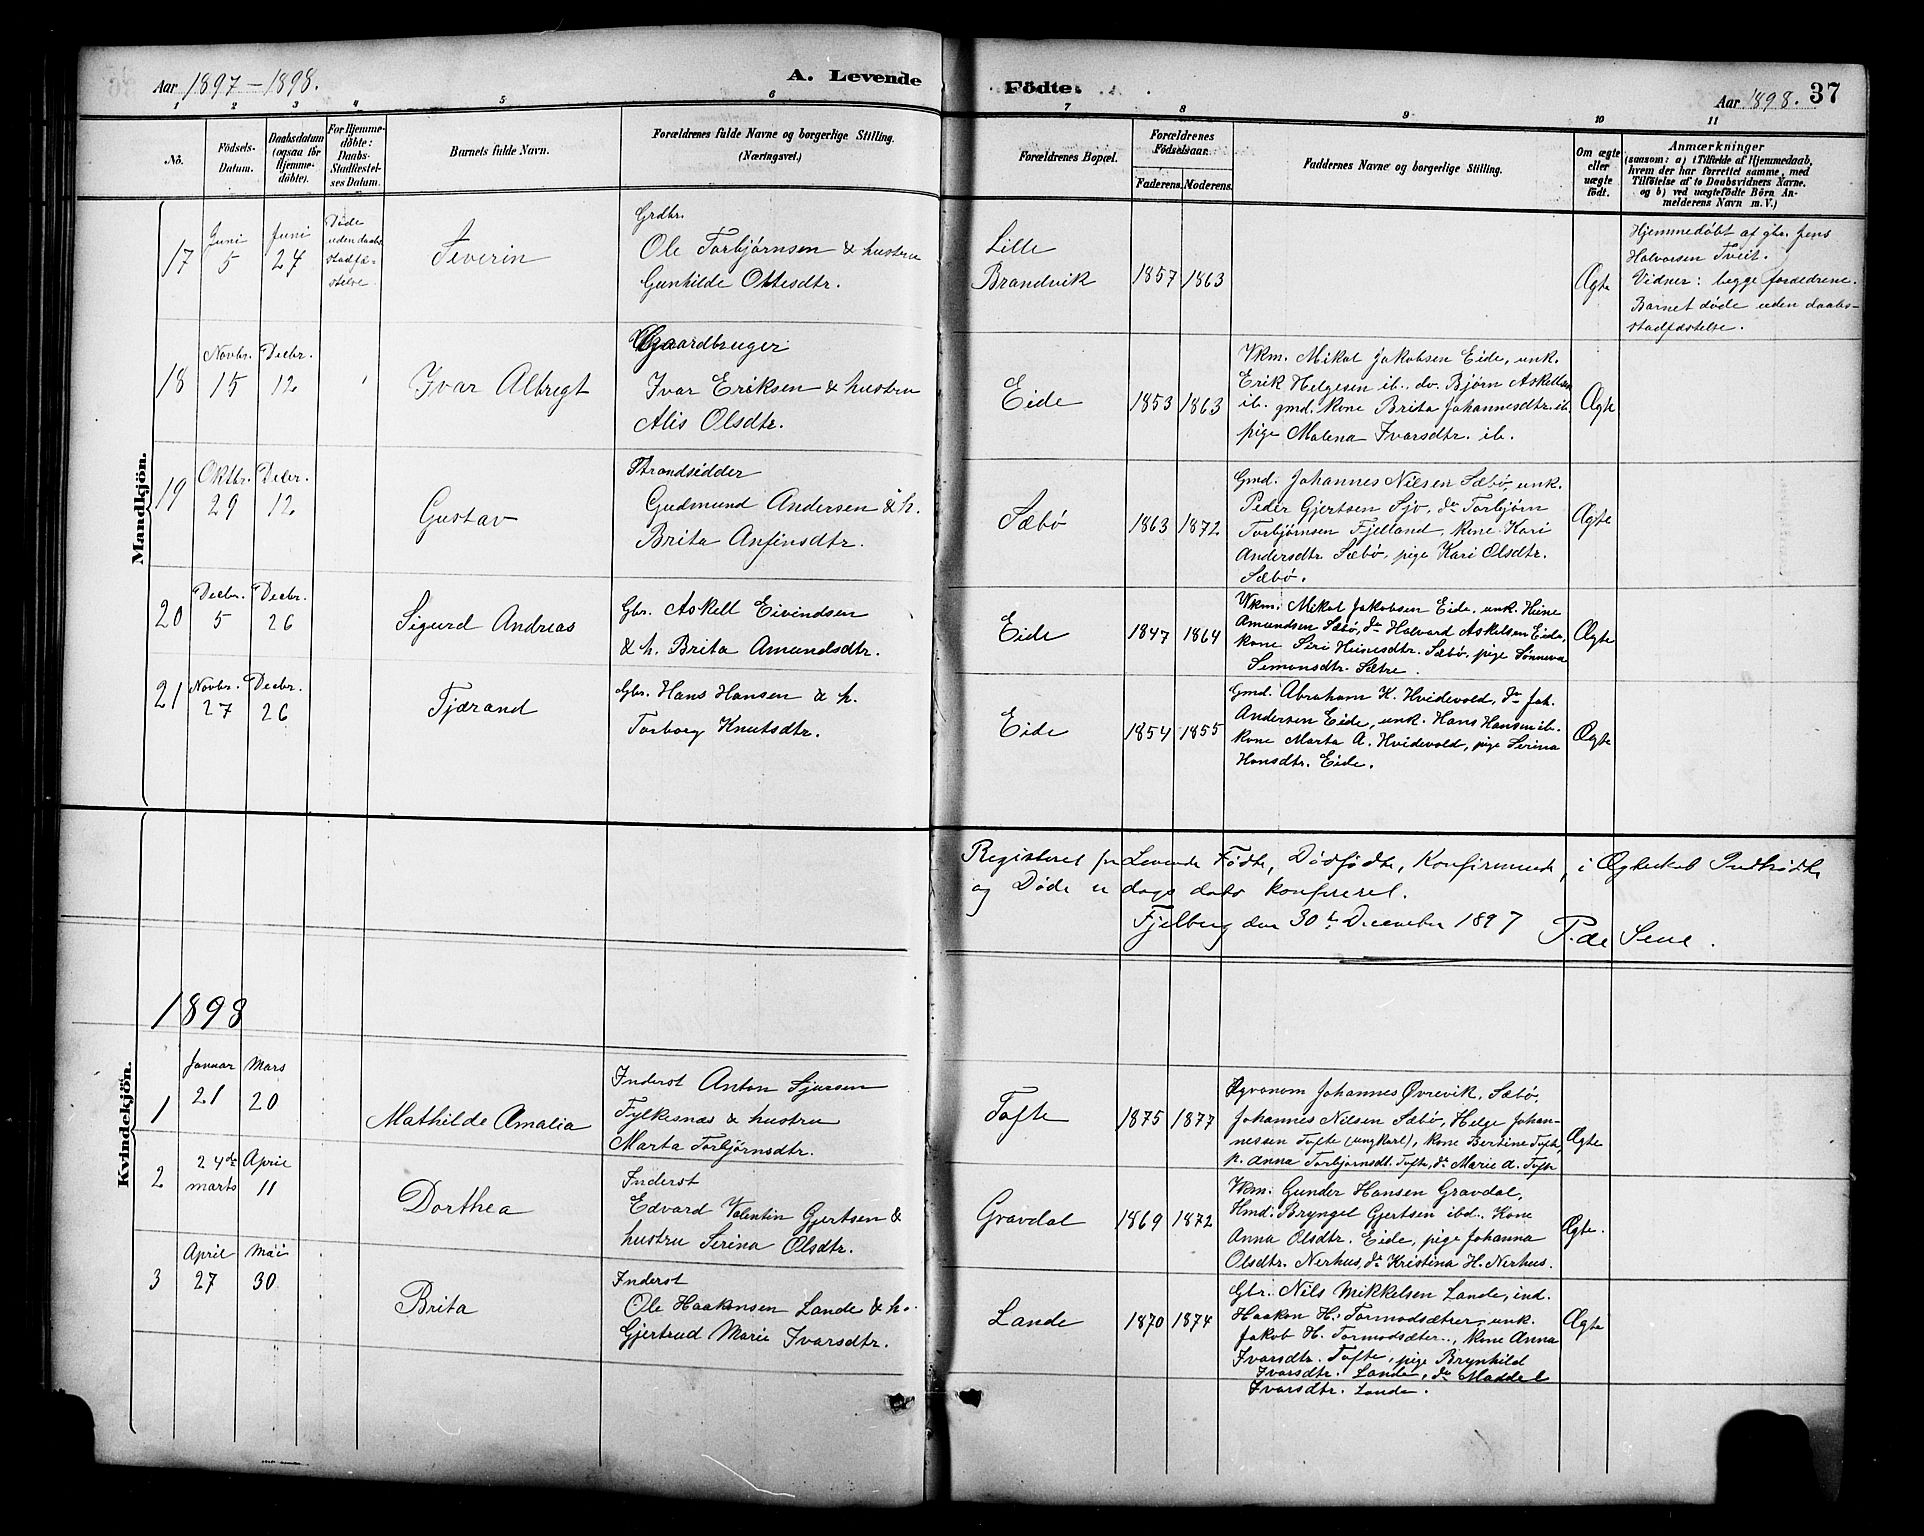 Aar 1897-1898.
A. Levende
Födte.
Aar 1898.
37
1 2 3 4 5 6 7 8 9 10 11
No.
Födsels-
Datum.
Daabsdatum
(ogsaa for
Hjemme-
døbte).
For Hjemme-
døbte:
Daabs-
Stadfestel-
ses Datum.
Barnets fulde Navn.
Forældrenes fulde Navne og borgerlige Stilling.
(Næringsvei.)
Forældrenes Bopæl.
Forældrenes
Födselsaar.
Faderens. Moderens.
Faddernes Navne og borgerlige Stilling.
Om ægte
eller
uægte
født.
Anmærkninger
(saasom: a) i Tilfælde af Hjemmedaab,
hvem der har forrettet samme, med
Tilföielse af to Daabsvidners Navne.
og b) ved uægtefödte Börn An-
melderens Navn m. V.)
Mandkjön.
17
Juni
5
Juni
27
Døde
uden daabs
stadfæ-
stelse
Severin
Grdbr.
Ole Torbjørnsen & hustru
Gunhilde Ottesdtr.
Lille
Brandvik
1857 1863
Ægte
Hjemmedøbt af gbr. Jens
Halvorsen Tveit.
Vidner: begge forældrene.
Barnet døde uden daabs-
stadfæstelse.
18
Novbr.
15
Decbr.
12
Ivar Albregt
Gaardbruger
Ivar Eriksen & hustru
Alis Olsdtr.
Eide
1853 1863
Vkm. Mikal Jakobsen Eide, unk.
Erik Helgesen ib., do. Bjørn Askellsen
ib. gmd. kone Brita Johannesdtr. ib.
pige Malena Ivarsdtr. ib.
Ægte
19
Oktbr.
29
Decbr.
12
Gustav
Strandsidder
Gudmund Andersen & h.
Brita Anfinsdtr.
Sæbø
1863 1872
Gmd. Johannes Nilsen Sæbø, unk.
Peder Gjertsen Sjo, do Torbjørn
Torbjørnsen Fjelland, kone Kari
Andersdtr Sæbø, pige Kari Olsdtr.
Sæbø.
Ægte
20
Decbr.
5
Decbr.
26
Sigurd Andreas
Gbr. Askell Eivindsen
& h. Brita Amundsdtr.
Eide
1847 1864
Vkm. Mikal Jakobsen Eide, unk. Heine
Amundsen Sæbø, do Halvard Askelsen Eide,
kone Siri Heinesdtr. Sæbø, pige Sønneva
Simonsdtr. Sætre.
Ægte
21
Novbr.
27
Decbr.
26
Tjærand
Gbr. Hans Hansen & h.
Torborg Knutsdtr.
Eide
1854 1855
Gmd. Abraham K. Hvidevold, do Joh.
Andersen Eide, unk. Hans Hansen ib.
kone Marta A. Hvidevold, pige Serina
Hansdtr. Eide.
Ægte
Registeret for Levende Fødte, Dødfødte, Konfirmerede, i Ægteskab Indtrådte
og Døde er dags dato konfereret.
Fjelberg den 30te December 1897 P. de Seve.
Kvindekjön.
1898
1
Januar
21
Mars
20
Mathilde Amalia
Inderst Anton Sjursen
Fylkesnæs & hustru
Marta Torbjørnsdtr.
Tofte
1875 1877
Agronom Johannes Øvrevik, Sæbø,
Johannes Nilsen Sæbø, Helge Johan-
nessen Tofte (ungkarl), kone Bertine Tofte,
p. Anna Torbjørnsdt. Tofte, do Marie A. Tofte
Ægte
2
24de
marts
April
11
Dorthea
Inderst
Edvard Valentin Gjertsen &
hustru Serina Olsdtr.
Gravdal
1869 1872
Vkm. Gunder Hansen Gravdal,
Hmd. Bryngel Gjertsen ibd. Kone
Anna Olsdtr. Eide, pige Johanna
Olsdtr. Nerhus, do Kristina H. Nerhus.
Ægte.
3
April
27
Mai
30
Brita
Inderst
Ole Haakonsen Lande & h.
Gjertrud Marie Ivarsdtr.
Lande
1870 1874
Gbr. Nils Mikkelsen Lande, ind.
Haakon H. Tormodsætrer, unk.
Jakob H. Tormodsæter, kone Anna
Ivarsdtr. Tofte, pige Brynhild
Ivarsdtr. Lande, do Maddel
Ivarsdtr. Lande.
Ægte